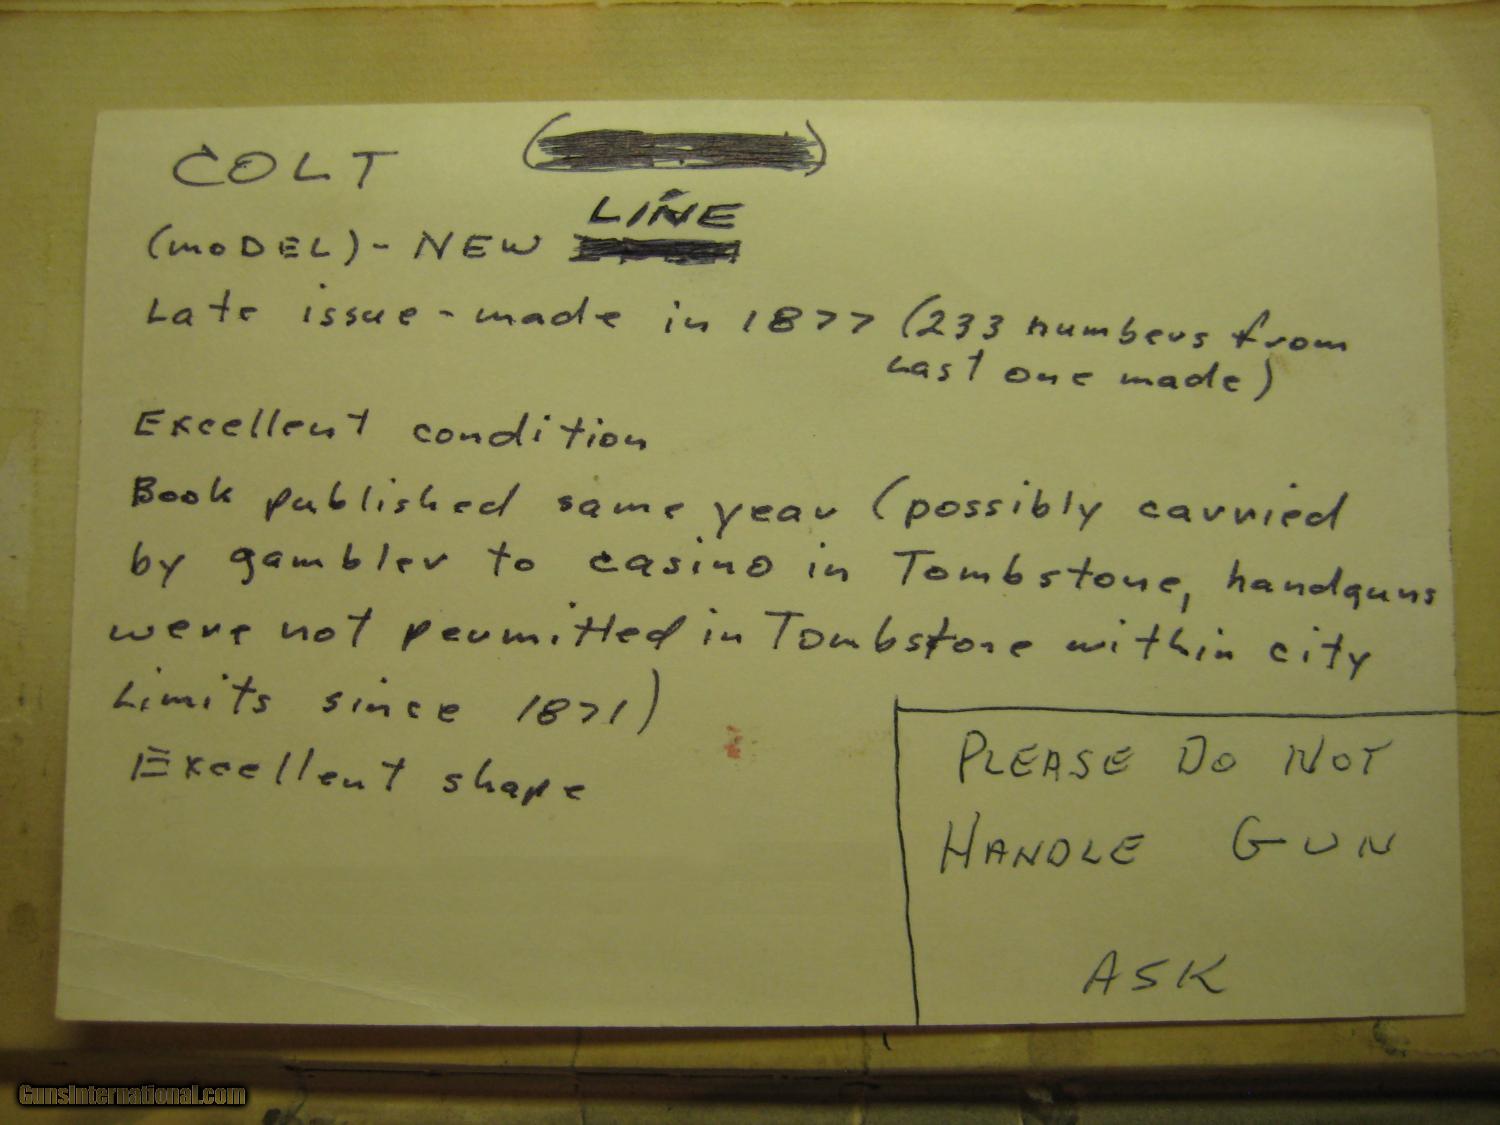 COLT
LINE
(MODEL) - NEW
Late issue - made in 1877 (233 numbers from
Last one made)
Excellent condition
Book published same year (possibly carried
by gambler to casino in Tombstone, handguns
were not permitted in Tombstone within city
Limits since 1871)
Excellent shape
PLEASE DO NOT
HANDLE GUN
ASK
GunsInternational.com